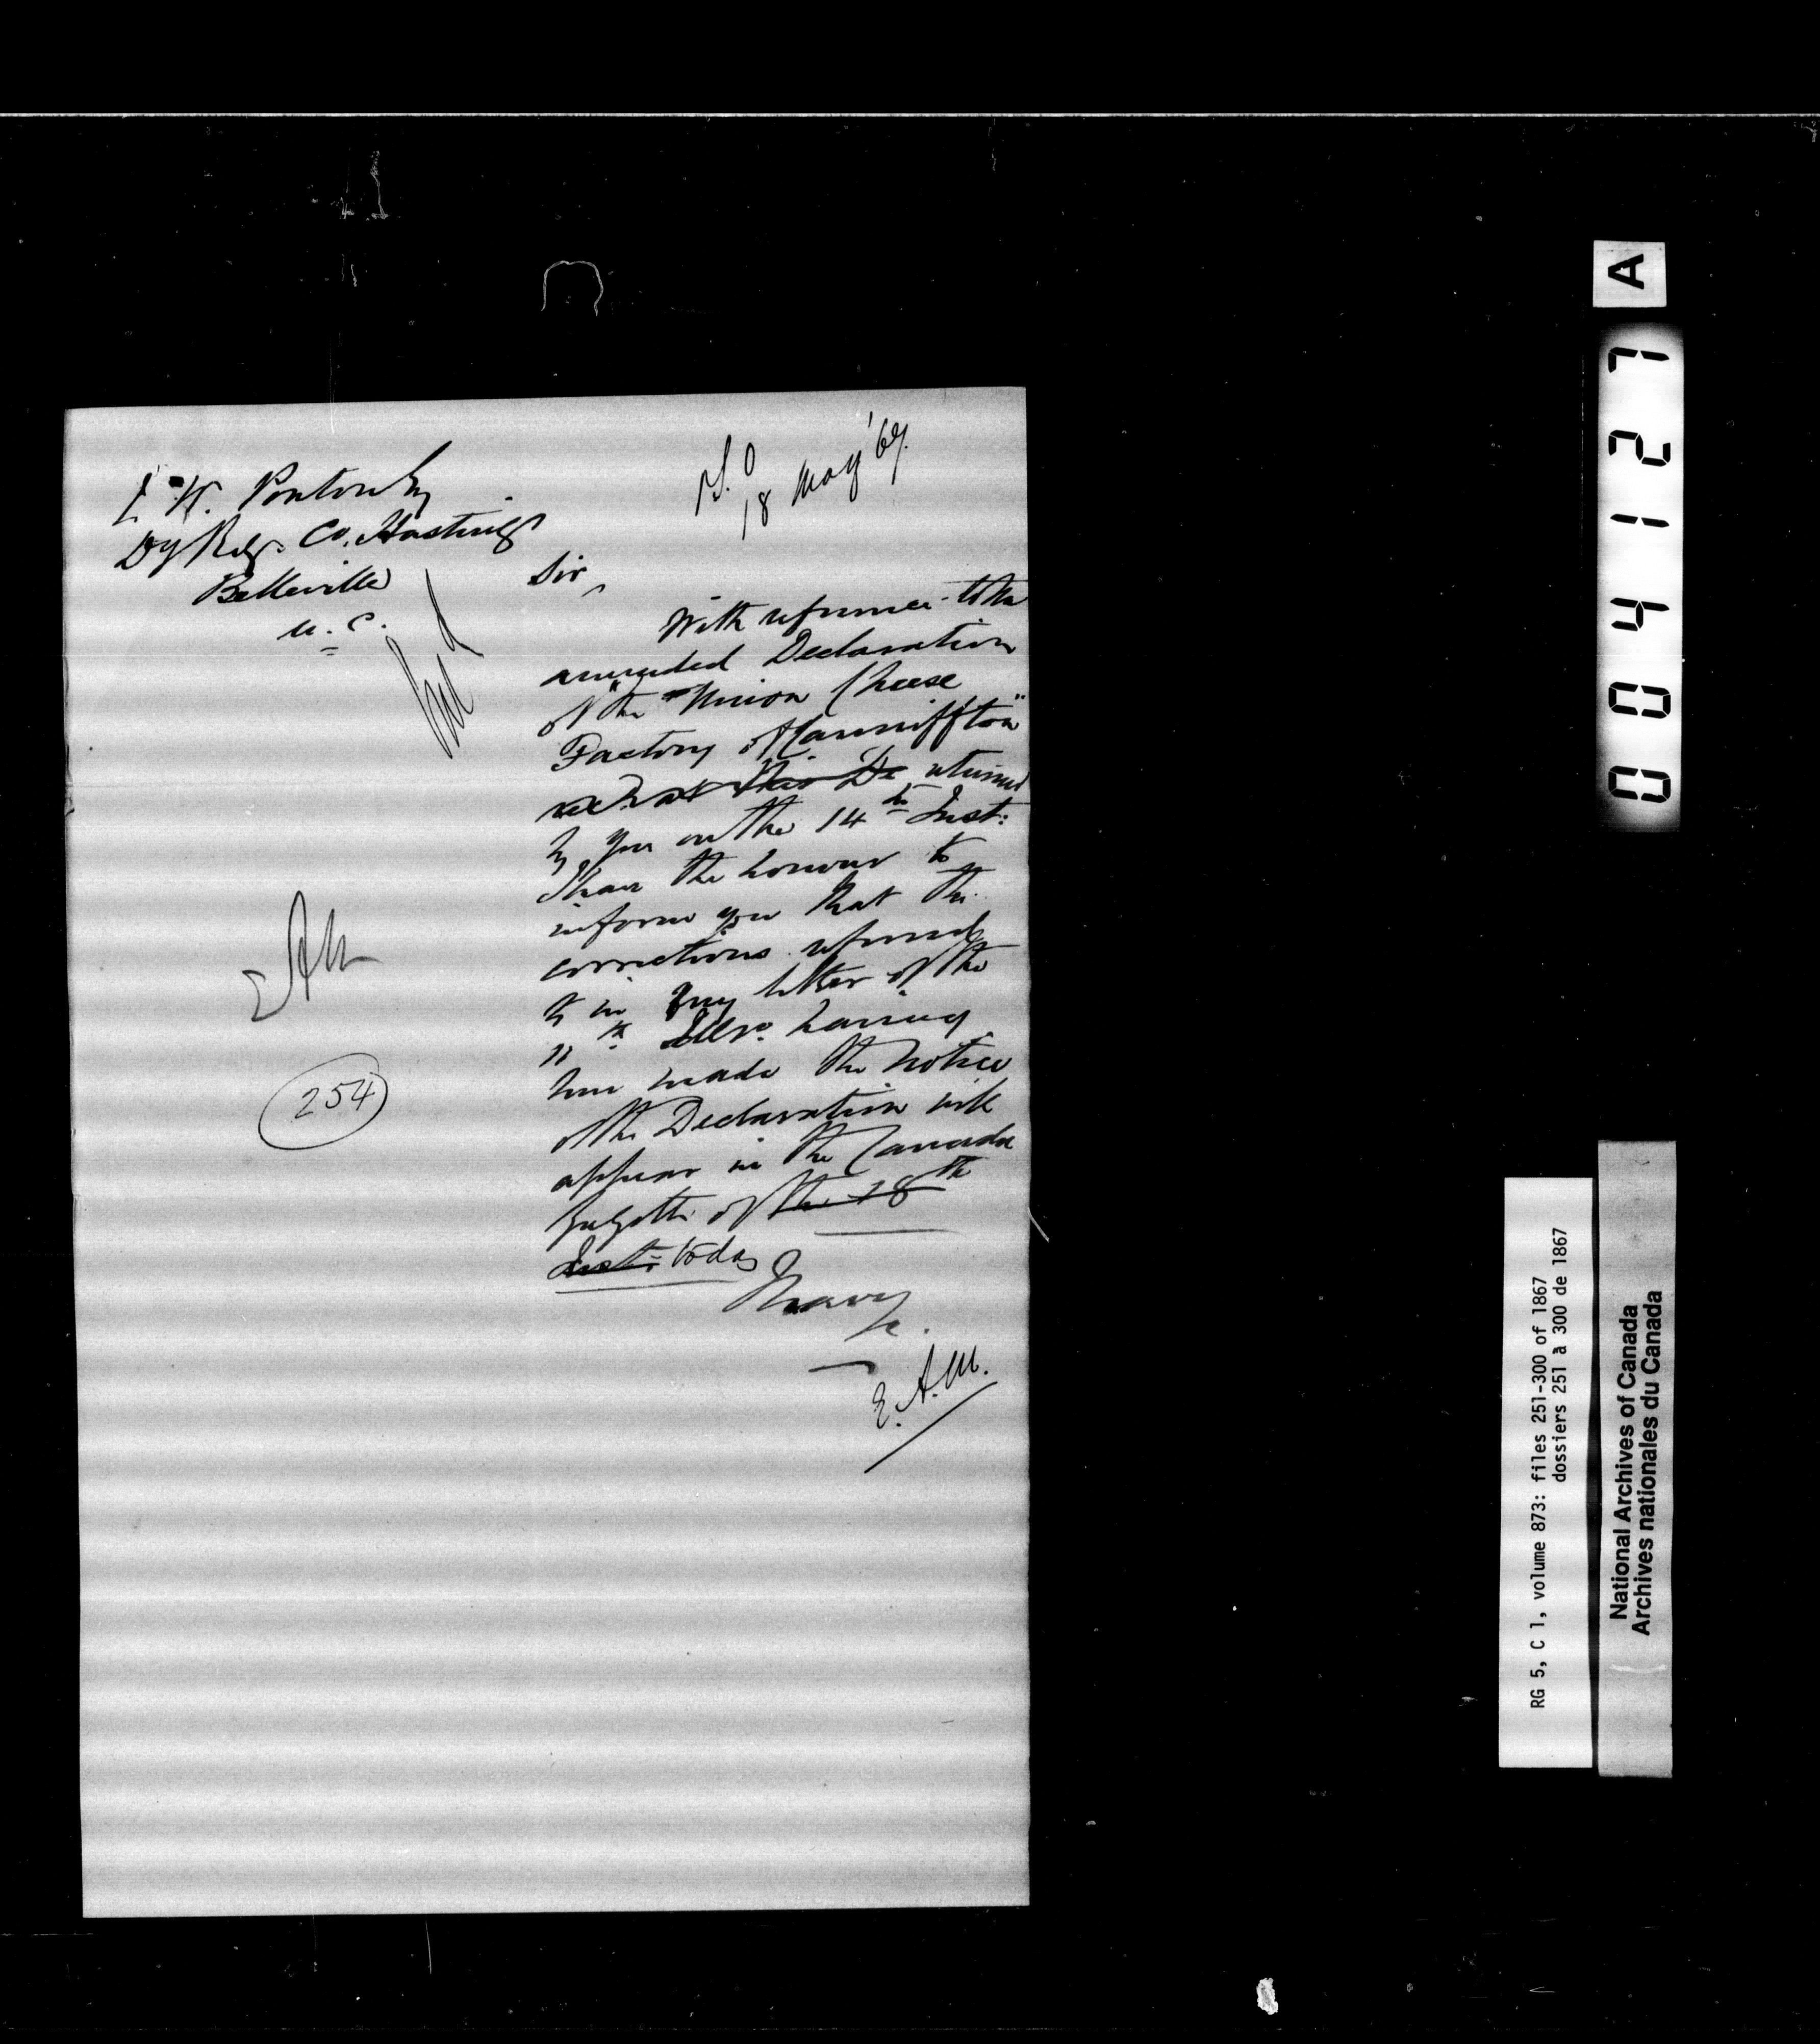 P.S.O
18 May '67.
W. Ponton Esq
Dy Regr. Co. Hastings
Belleville
U.C.
Sir,
With reference to the
amended Declaration
of "the Union Cheese
Factory of Cannifton"
recd. at this De returned
by you on the 14th Inst:
I have the honour to
inform you that the
corrections referred
to in my letter of the
11th Ulto. having
been made the notice
of the Declaration will
appear in the Canada
Gazette of the 18th
Inst: today
I have
&c.
E.A.M.
EAM
254
A
004127
RG 5, C 1, volume 873: files 251-300 of 1867
dossiers 251 à 300 de 1867
National Archives of Canada
Archives nationales du Canada